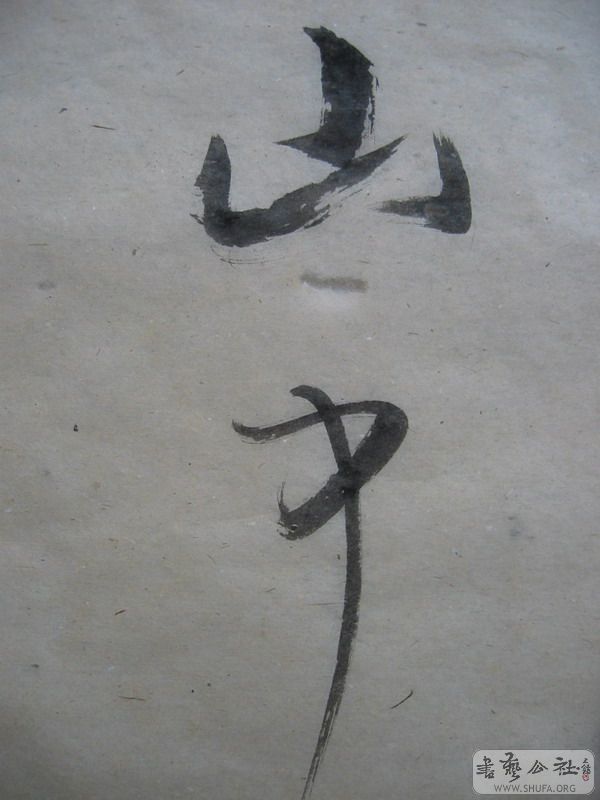 山中
書藝公社
WWW.SHUFA.ORG